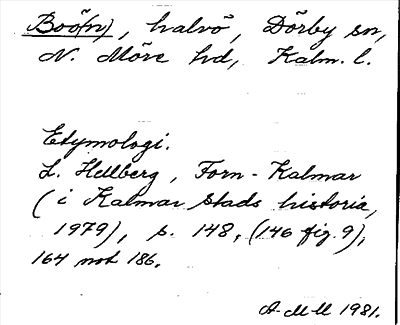 Boö(n), halvö, Dörby sn,
N. Möre hd, Kalm. l.
Etymologi.
L. Hellberg, Forn-Kalmar
(i Kalmar stads historia,
1979), s. 148, (146 fig. 9),
164 not 186.
A-M M 1981.